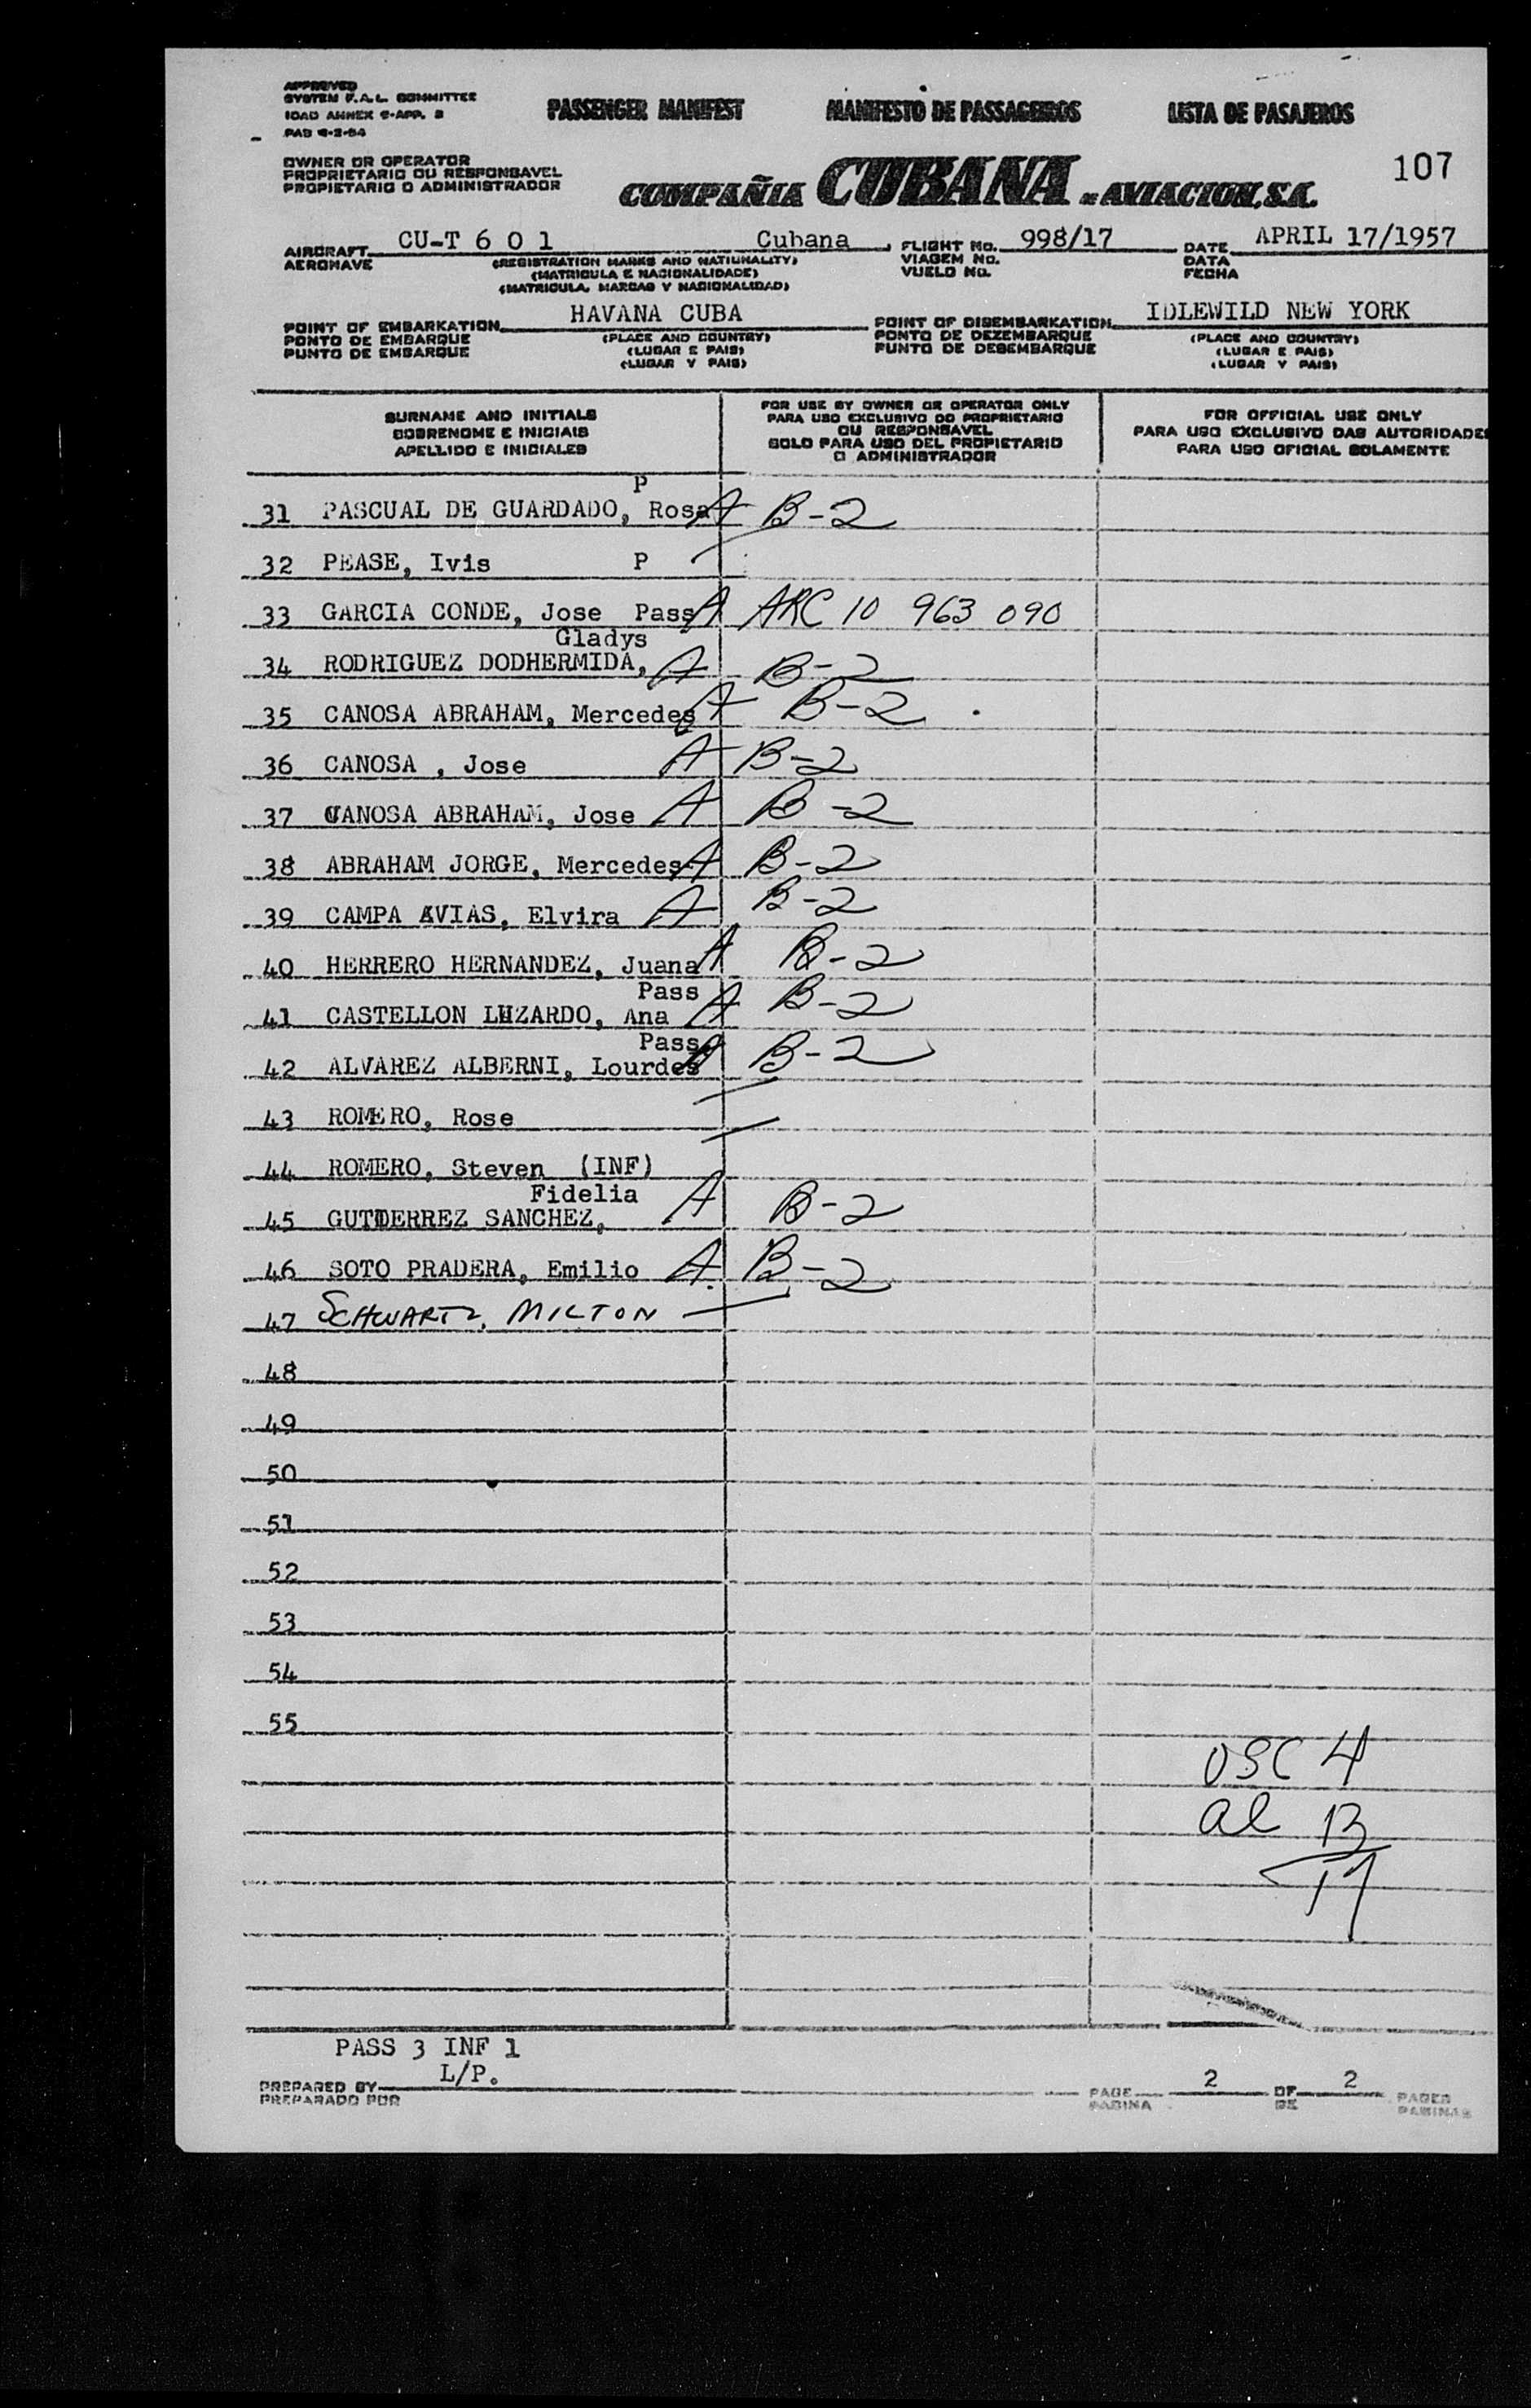 APPROVED
SYSTEM F.A.L. COMMITTEE
ICAO ANNEX 9-APP. 2
PAB 4-2-54
PASSENGER MANIFEST MANIFESTO DE PASSAGEIROS LISTA DE PASAJEROS
107
OWNER OR OPERATOR
PROPRIETARIO OU RESPONSAVEL
PROPIETARIO O ADMINISTRADOR
COMPAÑIA CUBANA DE AVIACION, S.A.
AIRCRAFT CU-T 6 0 1 Cubana FLIGHT No. 998/17 DATE APRIL 17/1957
AERONAVE (REGISTRATION MARKS AND NATIONALITY) VIAGEM No. DATA
(MATRICULA E NACIONALIDADE) VUELO No. FECHA
(MATRICULA, MARCAS Y NACIONALIDAD)
POINT OF EMBARKATION HAVANA CUBA POINT OF DISEMBARKATION IDLEWILD NEW YORK
PONTO DE EMBARQUE (PLACE AND COUNTRY) PONTO DE DEZEMBARQUE (PLACE AND COUNTRY)
PUNTO DE EMBARQUE (LUGAR E PAIS) PUNTO DE DESEMBARQUE (LUGAR E PAIS)
(LUGAR Y PAIS) (LUGAR Y PAIS)
SURNAME AND INITIALS
SOBRENOME E INICIAIS
APELLIDO E INICIALES
FOR USE BY OWNER OR OPERATOR ONLY
PARA USO EXCLUSIVO DO PROPRIETARIO
OU RESPONSAVEL
SOLO PARA USO DEL PROPIETARIO
O ADMINISTRADOR
FOR OFFICIAL USE ONLY
PARA USO EXCLUSIVO DAS AUTORIDADES
PARA USO OFICIAL SOLAMENTE
P
31 PASCUAL DE GUARDADO, Rosa A B-2
32 PEASE, Ivis P
33 GARCIA CONDE, Jose Pass A ARC 10 963 090
Gladys
34 RODRIGUEZ DODHERMIDA, A B-2
35 CANOSA ABRAHAM, Mercedes A B-2
36 CANOSA , Jose A B-2
37 CANOSA ABRAHAM, Jose A B-2
38 ABRAHAM JORGE, Mercedes A B-2
39 CAMPA AVIAS, Elvira A B-2
40 HERRERO HERNANDEZ, Juana A B-2
Pass
41 CASTELLON LUZARDO, Ana A B-2
Pass
42 ALVAREZ ALBERNI, Lourdes A B-2
43 ROMERO, Rose
44 ROMERO, Steven (INF)
Fidelia
45 GUTIERREZ SANCHEZ, A B-2
46 SOTO PRADERA, Emilio A B-2
47 SCHWARTZ, MILTON
48
49
50
51
52
53
54
55
USC 4
al 13
17
PASS 3 INF 1
PREPARED BY L/P.
PREPARADO POR
PAGE 2 OF 2 PAGES
PAGINA DE PAGINAS